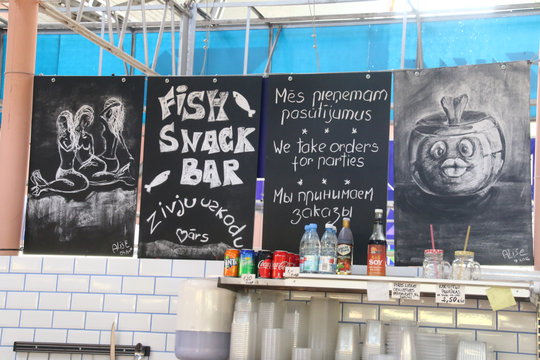 FISH
SNACK
BAR
Zivju uzkodu
bārs
Mēs pieņemam
pasūtījumus
We take orders
for parties
Мы принимаем
заказы
Alise
Alise
FANTA
SOY
3,50